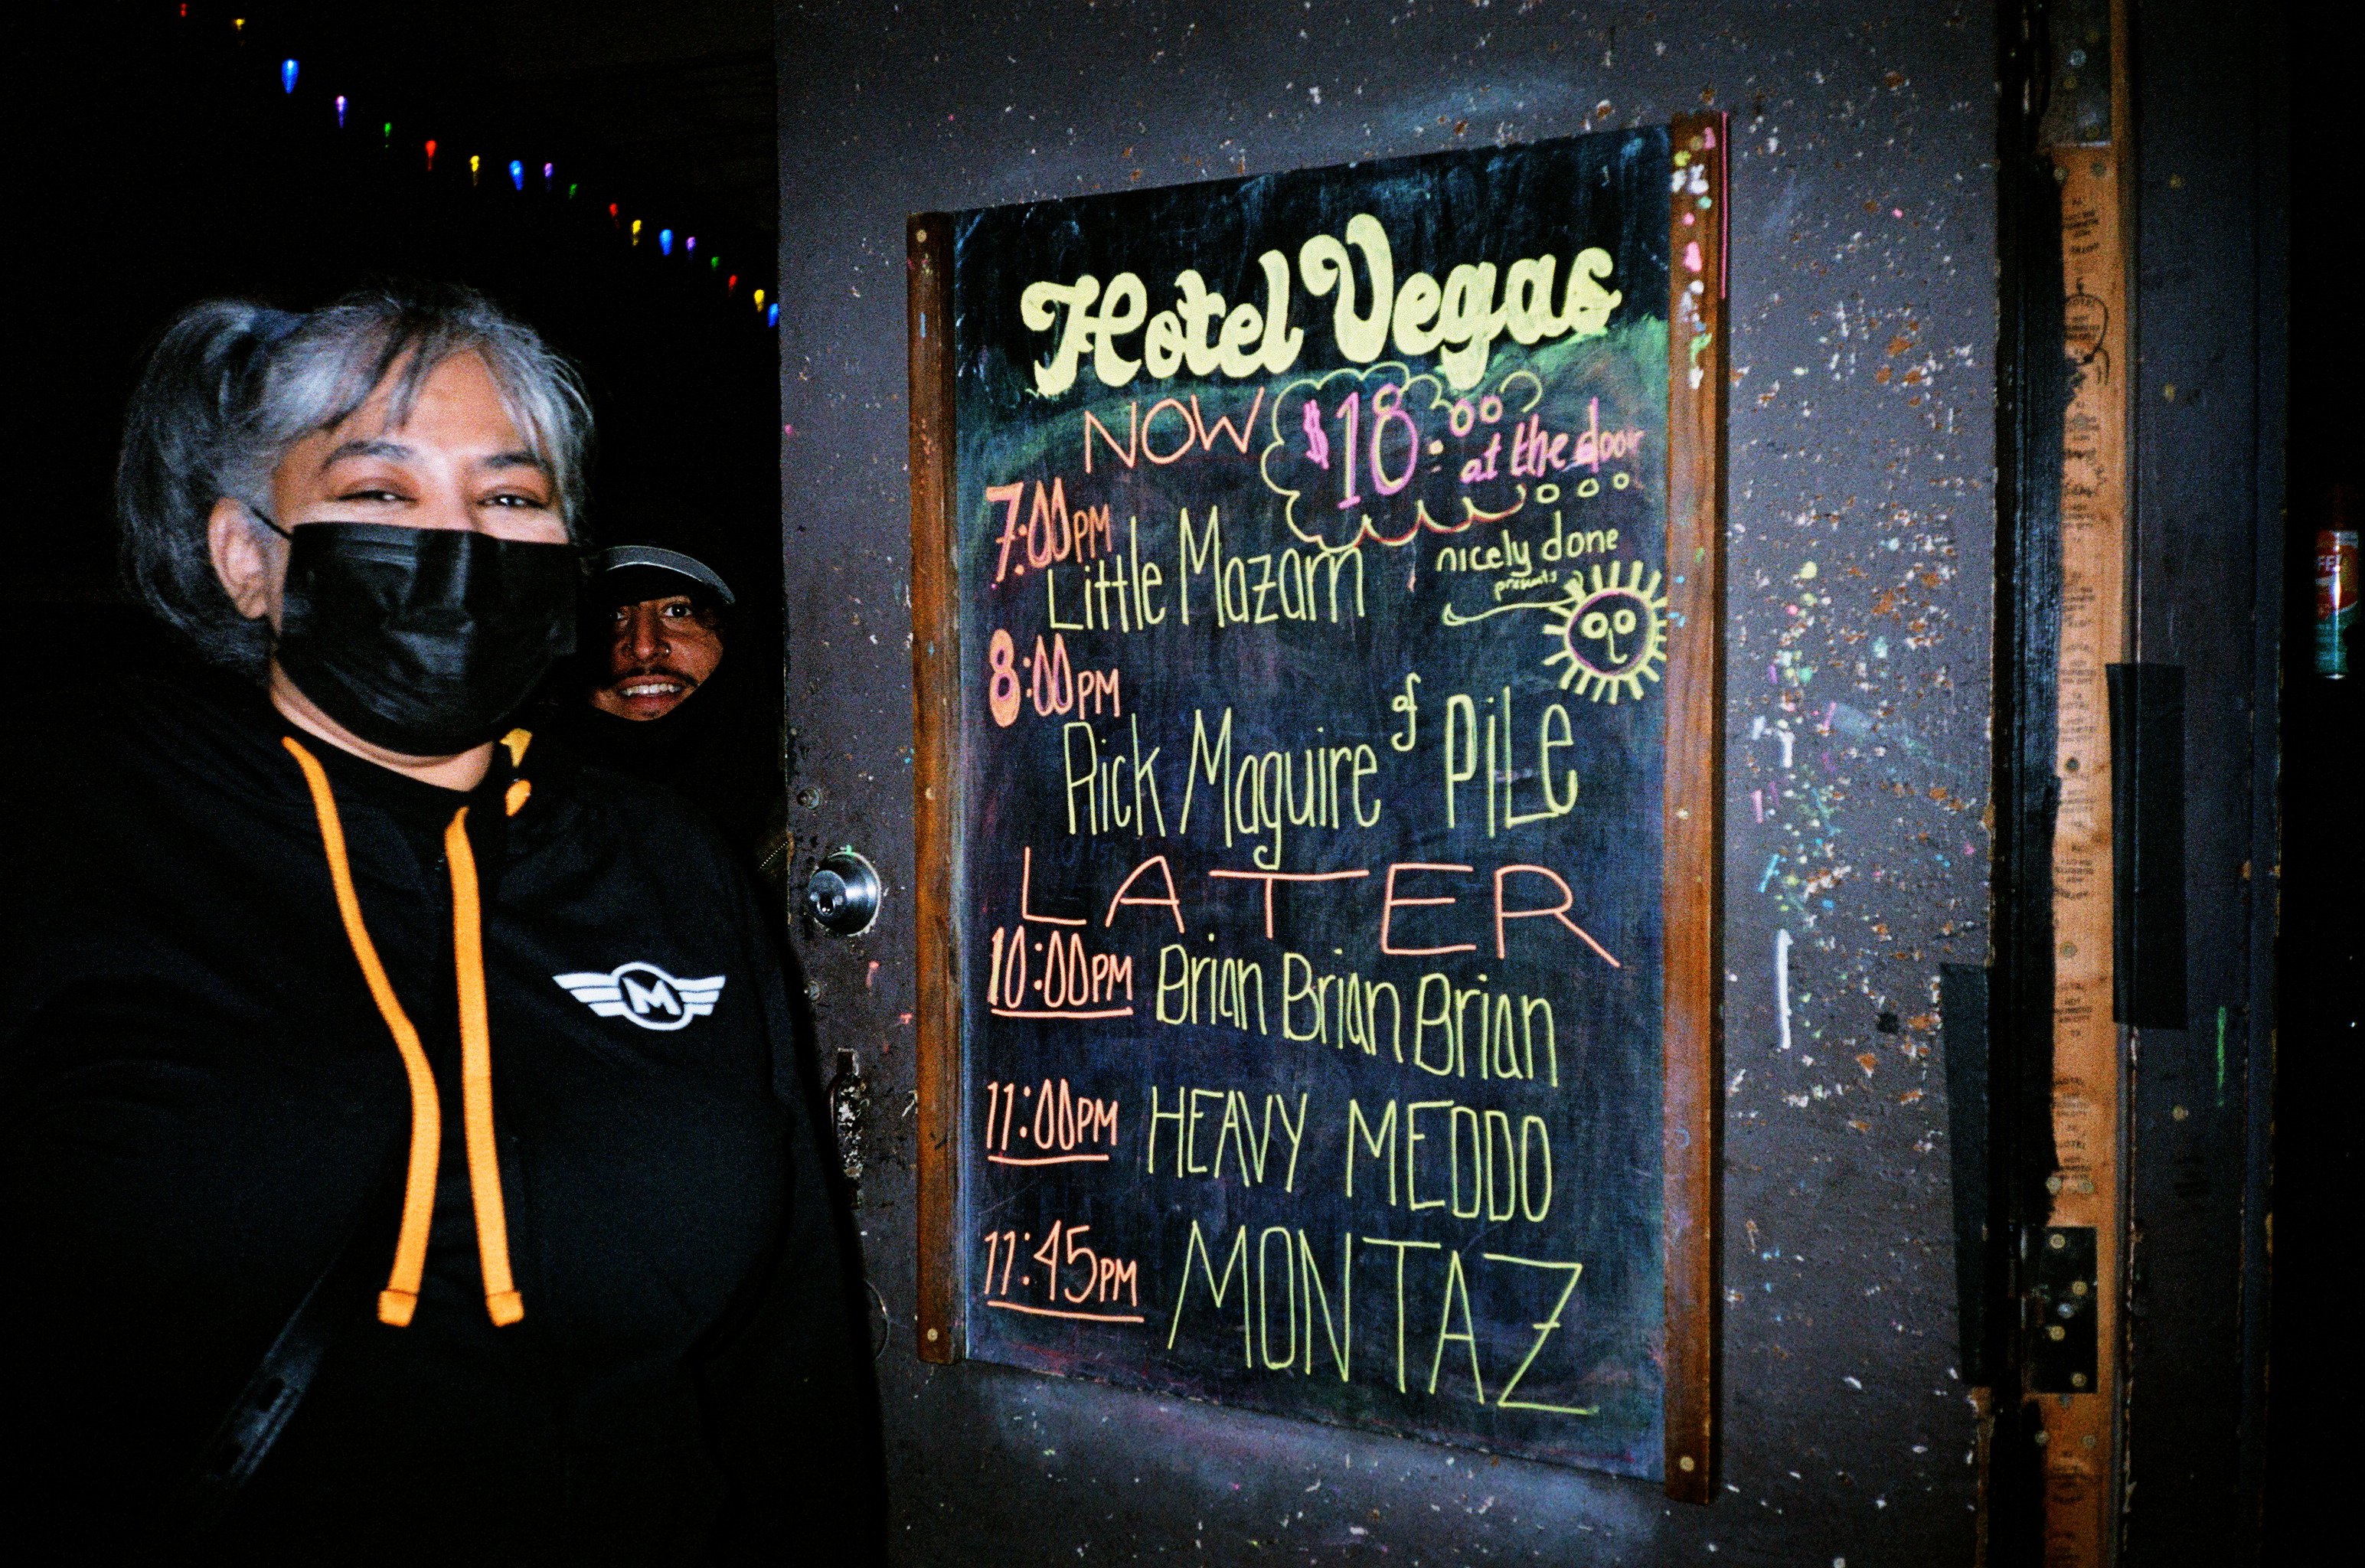 Hotel Vegas
NOW
$18.00
at the door
7:00PM
Little Mazarn
nicely done
presents
8:00PM
Rick Maguire of PiLe
LATER
10:00PM Brian Brian Brian
11:00PM HEAVY MEDDO
11:45PM MONTAZ
M